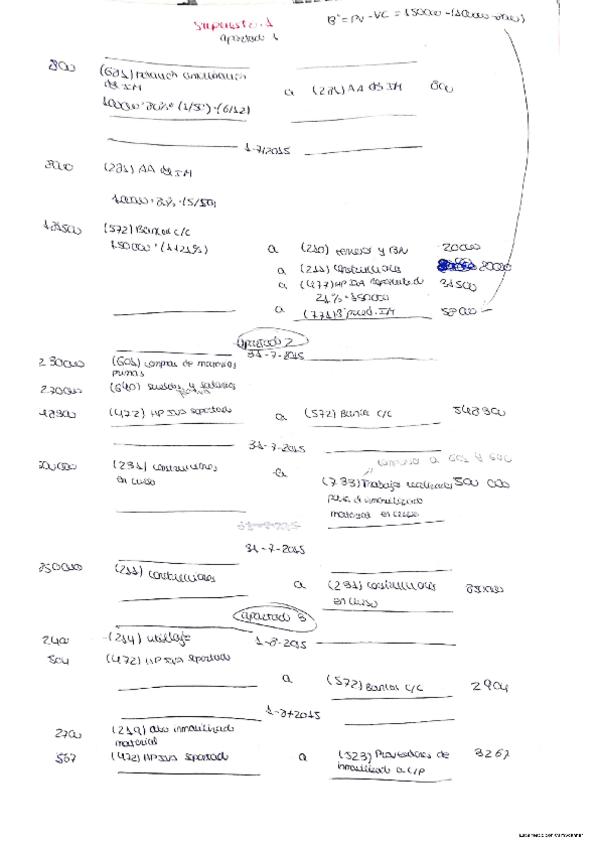 Supuesto 1
apartado 1
Bº = PV - VC = 150000 - (100000 -
800 (681)
del IM a (281) AA del IM 800
10000 · 80% · (1/50) · (6/12)
1-7-2015
8000 (281) AA del IM
(572) Bancos c/c
150000 · (1+21%) a (210) Terrenos y BN 20000
a (211) Construcciones 80000
a (477) HP IVA repercutido 31500
21% · 150000
a (771) Bº proced. IM
apartado 2
31-7-2015
230000 (601) compras de materias
primas
270000 (640) sueldos y salarios
48300 (472) HP IVA soportado a (572) Bancos c/c 548300
31-7-2015
compensa a 601 y 640
500000 (231) construcciones
en curso a (733) Trabajos realizados 500 000
para el inmovilizado
material en curso
31-7-2015
31-7-2015
(211) construcciones a (231) construcciones
en curso
apartado 3
2400 (214) utillaje 1-8-2015
504 (472) HP IVA soportado
a (572) Bancos c/c 2904
2015
2700 (219) otro inmovilizado
material
567 (472) HP IVA soportado a (523) Proveedores de 3267
inmovilizado a C/P